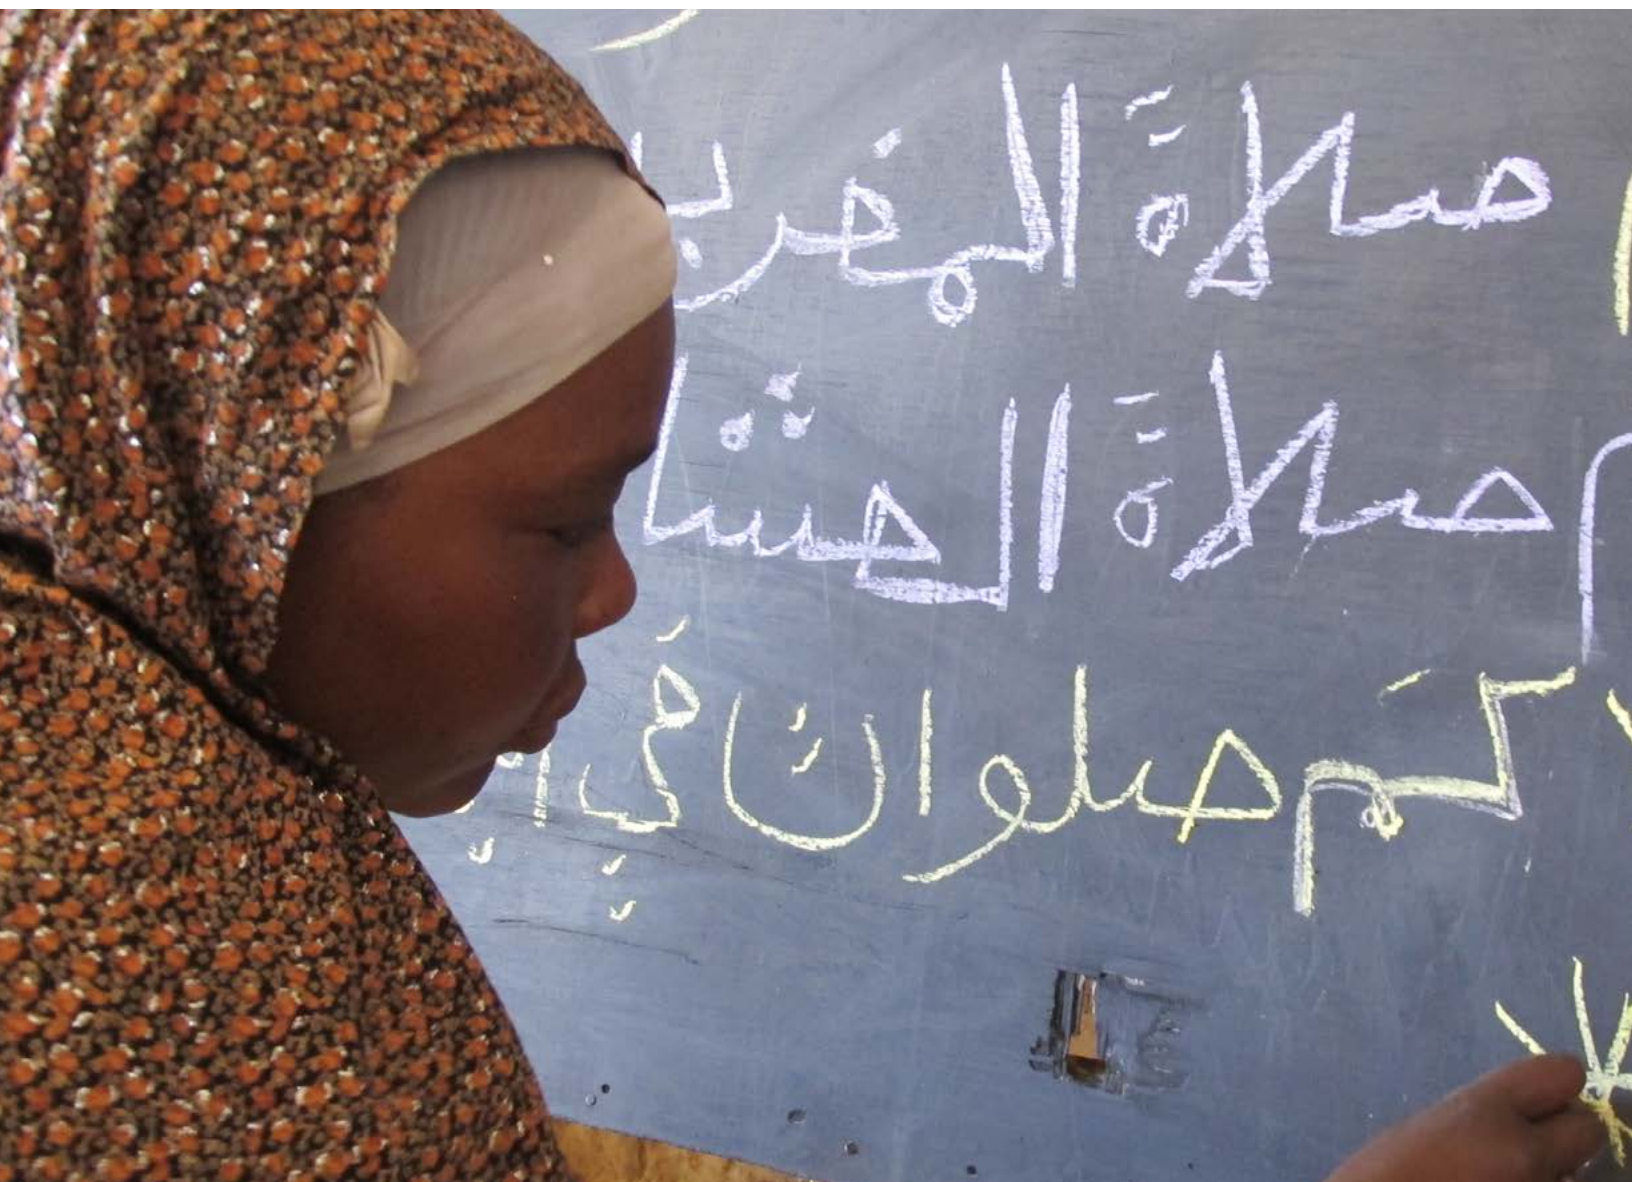 صلاة المغرب
صلاة العشا
كم صلوات في